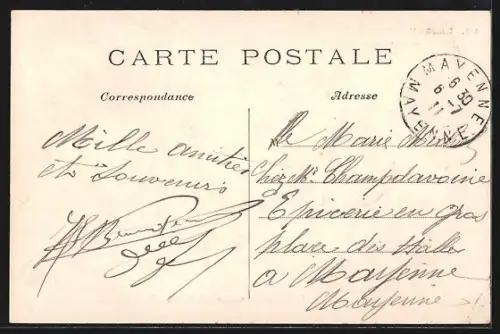 CARTE POSTALE
Correspondance
Adresse
MAYENNE
6 30
6 -7
11
MAYENNE
Mille amitiés
et souvenirs
Marie
chez Mr Champdavoine
Epicerie en gros
place des Halles
a Mayenne
Mayenne